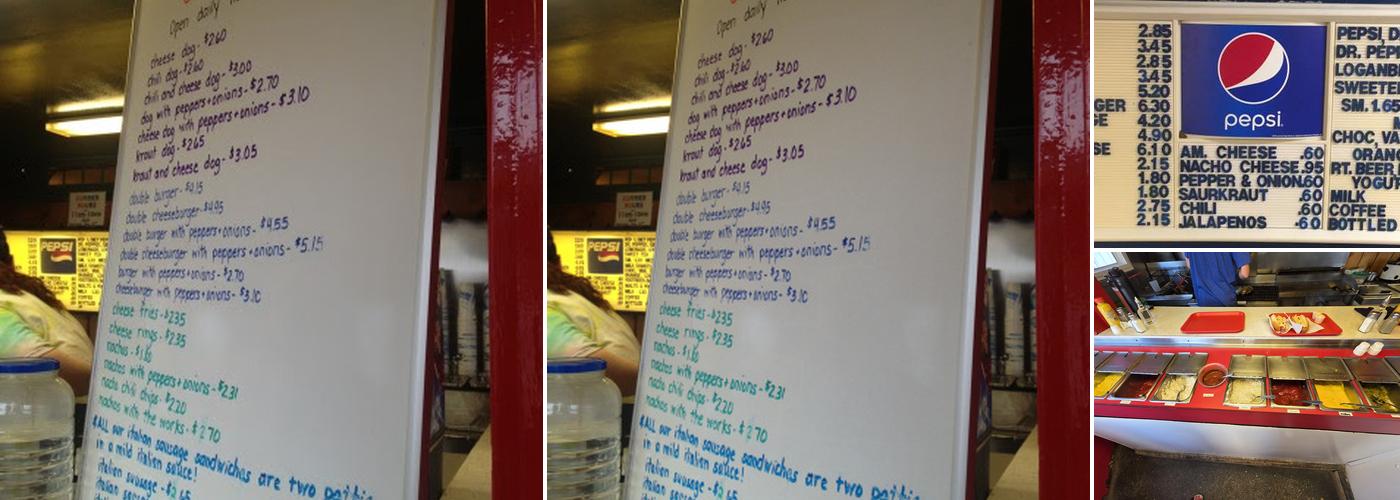 Open daily
cheese dog - $2.60
chili dog - $2.60
chili and cheese dog - $3.00
dog with peppers + onions - $2.70
cheese dog with peppers + onions - $3.10
kraut dog - $2.65
kraut and cheese dog - $3.05
double burger - $4.15
double cheeseburger - $4.95
double burger with peppers + onions - $4.55
double cheeseburger with peppers + onions - $5.15
burger with peppers + onions - $2.70
cheeseburger with peppers + onions - $3.10
cheese fries - $2.35
cheese rings - $2.35
nachos - $1.80
nachos with peppers + onions - $2.31
nacho chili chips - $2.20
nachos with the works - $2.70
*ALL our italian sausage sandwiches are two
in a mild italian sauce!
italian sausage - $2.65
PEPSI
Open daily
cheese dog - $2.60
chili dog - $2.60
chili and cheese dog - $3.00
dog with peppers + onions - $2.70
cheese dog with peppers + onions - $3.10
kraut dog - $2.65
kraut and cheese dog - $3.05
double burger - $4.15
double cheeseburger - $4.95
double burger with peppers + onions - $4.55
double cheeseburger with peppers + onions - $5.15
burger with peppers + onions - $2.70
cheeseburger with peppers + onions - $3.10
cheese fries - $2.35
cheese rings - $2.35
nachos - $1.80
nachos with peppers + onions - $2.31
nacho chili chips - $2.20
nachos with the works - $2.70
*ALL our italian sausage sandwiches are two
in a mild italian sauce!
italian sausage - $2.65
PEPSI
2.85
3.45
2.85
3.45
5.20
GER 6.30
GE 4.20
4.90
SE 6.10
2.15
1.80
1.80
2.75
2.15
pepsi
AM. CHEESE .60
NACHO CHEESE .95
PEPPER & ONION .60
SAURKRAUT .60
CHILI .60
JALAPENOS .60
PEPSI, D
DR. PEP
LOGANB
SWEETE
SM. 1.65
CHOC, VA
ORAN
RT. BEER
YOGU
MILK
COFFEE
BOTTLED